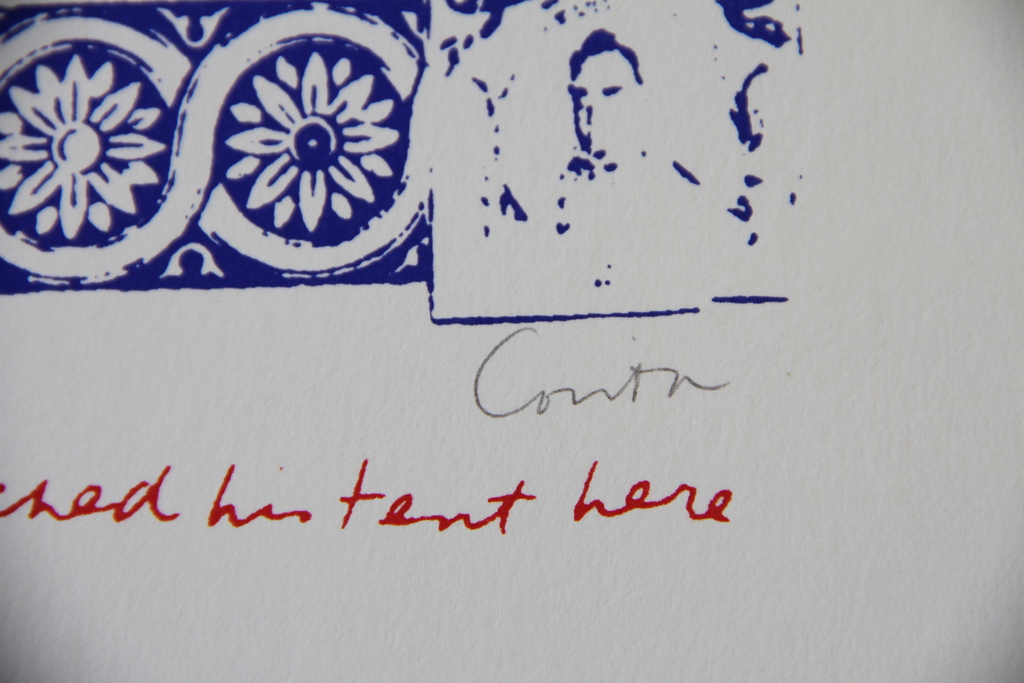 Corita
ched his tent here